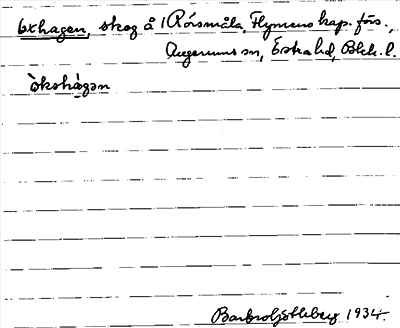 Oxhagen, skog å 1 Rörsmåla, Flymens kap. förs.,
Augerums sn, Östra hd, Blek. l.
òkshàgən
Barbro Götleberg 1934.